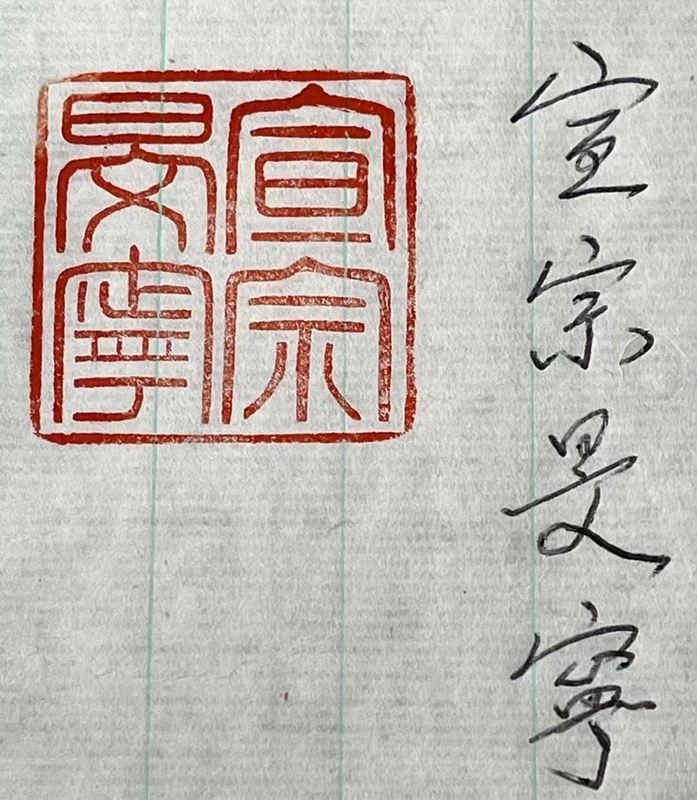 宣宗旻寧
宣宗
旻寧